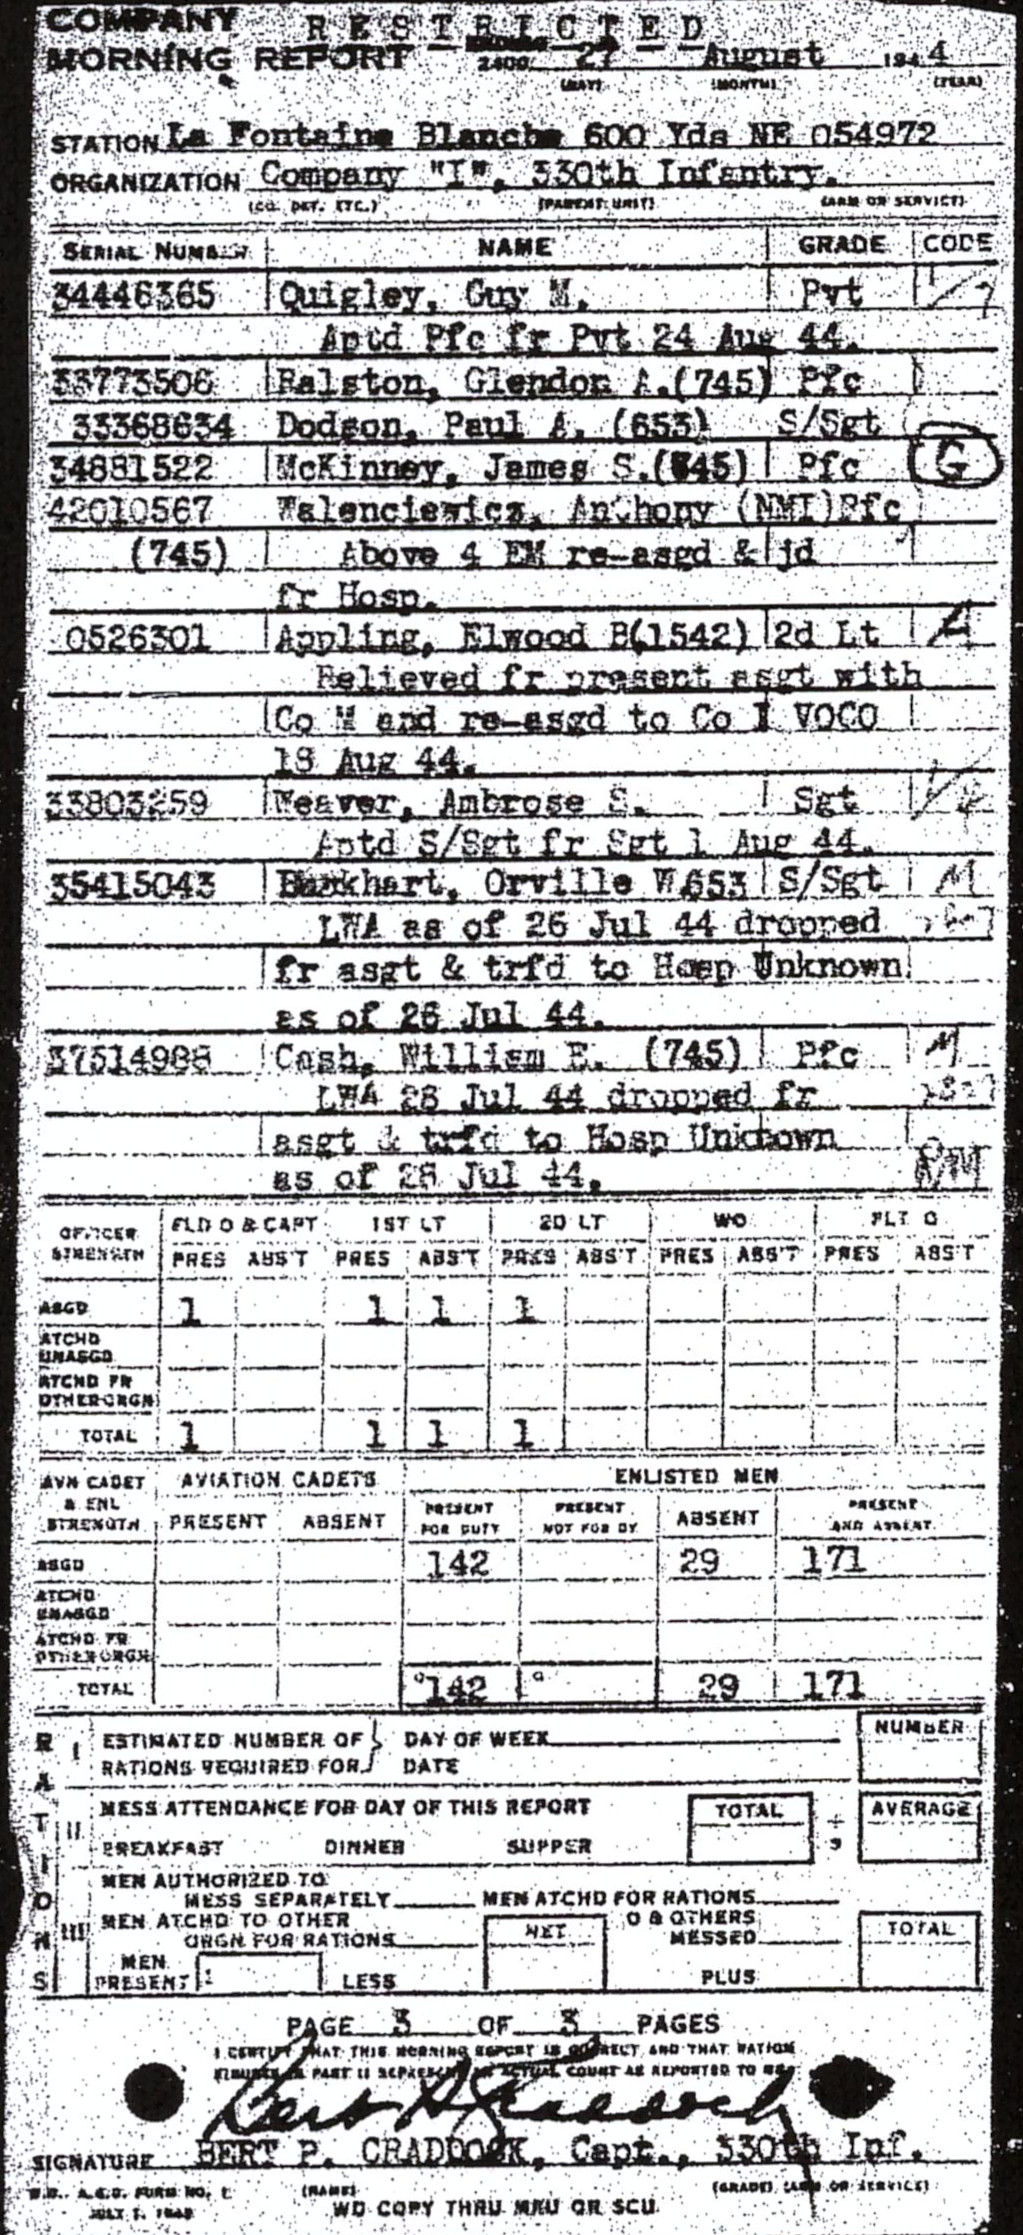 COMPANY RESTRICTED
MORNING REPORT 2400 27 August 1944
(DAY) (MONTH) (YEAR)
STATION La Fontaine Blanche 600 Yds NE 054972
ORGANIZATION Company "I", 330th Infantry.
(CO. DET. ETC.) (PARENT UNIT) (ARM OR SERVICE)
SERIAL NUMBER NAME GRADE CODE
34446365 Quigley, Guy M. Pvt
Aptd Pfc fr Pvt 24 Aug 44.
33773506 Ralston, Glendon A.(745) Pfc
33368634 Dodson, Paul A. (653) S/Sgt
34881522 McKinney, James S.(745) Pfc G
42010567 Walenciewicz, Anthony (NMI)Pfc
(745) Above 4 EM re-asgd & jd
fr Hosp.
0526301 Appling, Elwood B(1542) 2d Lt A
Relieved fr present asgt with
Co M and re-asgd to Co I VOCO
18 Aug 44.
33803259 Weaver, Ambrose S. Sgt
Aptd S/Sgt fr Sgt 1 Aug 44.
35415043 Burkhart, Orville W 653 S/Sgt M
LWA as of 26 Jul 44 dropped
fr asgt & trfd to Hosp Unknown
as of 26 Jul 44.
37514988 Cash, William E. (745) Pfc M
LWA 28 Jul 44 dropped fr
asgt & trfd to Hosp Unknown
as of 28 Jul 44.
OFFICER STRENGTH FLD O & CAPT 1ST LT 2D LT WO FLT O
PRES ABS'T PRES ABS'T PRES ABS'T PRES ABS'T PRES ABS'T
ASGD 1 1 1 1
ATCHD UNASGD
ATCHD FR OTHER ORGN
TOTAL 1 1 1 1
AVN CADET & ENL STRENGTH AVIATION CADETS ENLISTED MEN
PRESENT ABSENT PRESENT FOR DUTY PRESENT NOT FOR DY ABSENT PRESENT AND ABSENT
ASGD 142 29 171
ATCHD UNASGD
ATCHD FR OTHER ORGN
TOTAL 142 29 171
RATIONS
I ESTIMATED NUMBER OF DAY OF WEEK NUMBER
RATIONS REQUIRED FOR DATE
II MESS ATTENDANCE FOR DAY OF THIS REPORT TOTAL ÷ AVERAGE
BREAKFAST DINNER SUPPER 3
MEN AUTHORIZED TO
MESS SEPARATELY MEN ATCHD FOR RATIONS
III MEN ATCHD TO OTHER NET O & OTHERS TOTAL
ORGN FOR RATIONS MESSED
MEN
PRESENT LESS PLUS
PAGE 3 OF 3 PAGES
I CERTIFY THAT THIS MORNING REPORT IS CORRECT AND THAT RATION
FIGURES IN PART II REPRESENT AN ACTUAL COUNT AS REPORTED TO ME
Bert P Craddock
SIGNATURE BERT P. CRADDOCK, Capt., 330th Inf.
W.D., A.G.O. FORM NO. 1 (NAME) (GRADE) (ARM OR SERVICE)
JULY 1, 1943 WD COPY THRU MRU OR SCU